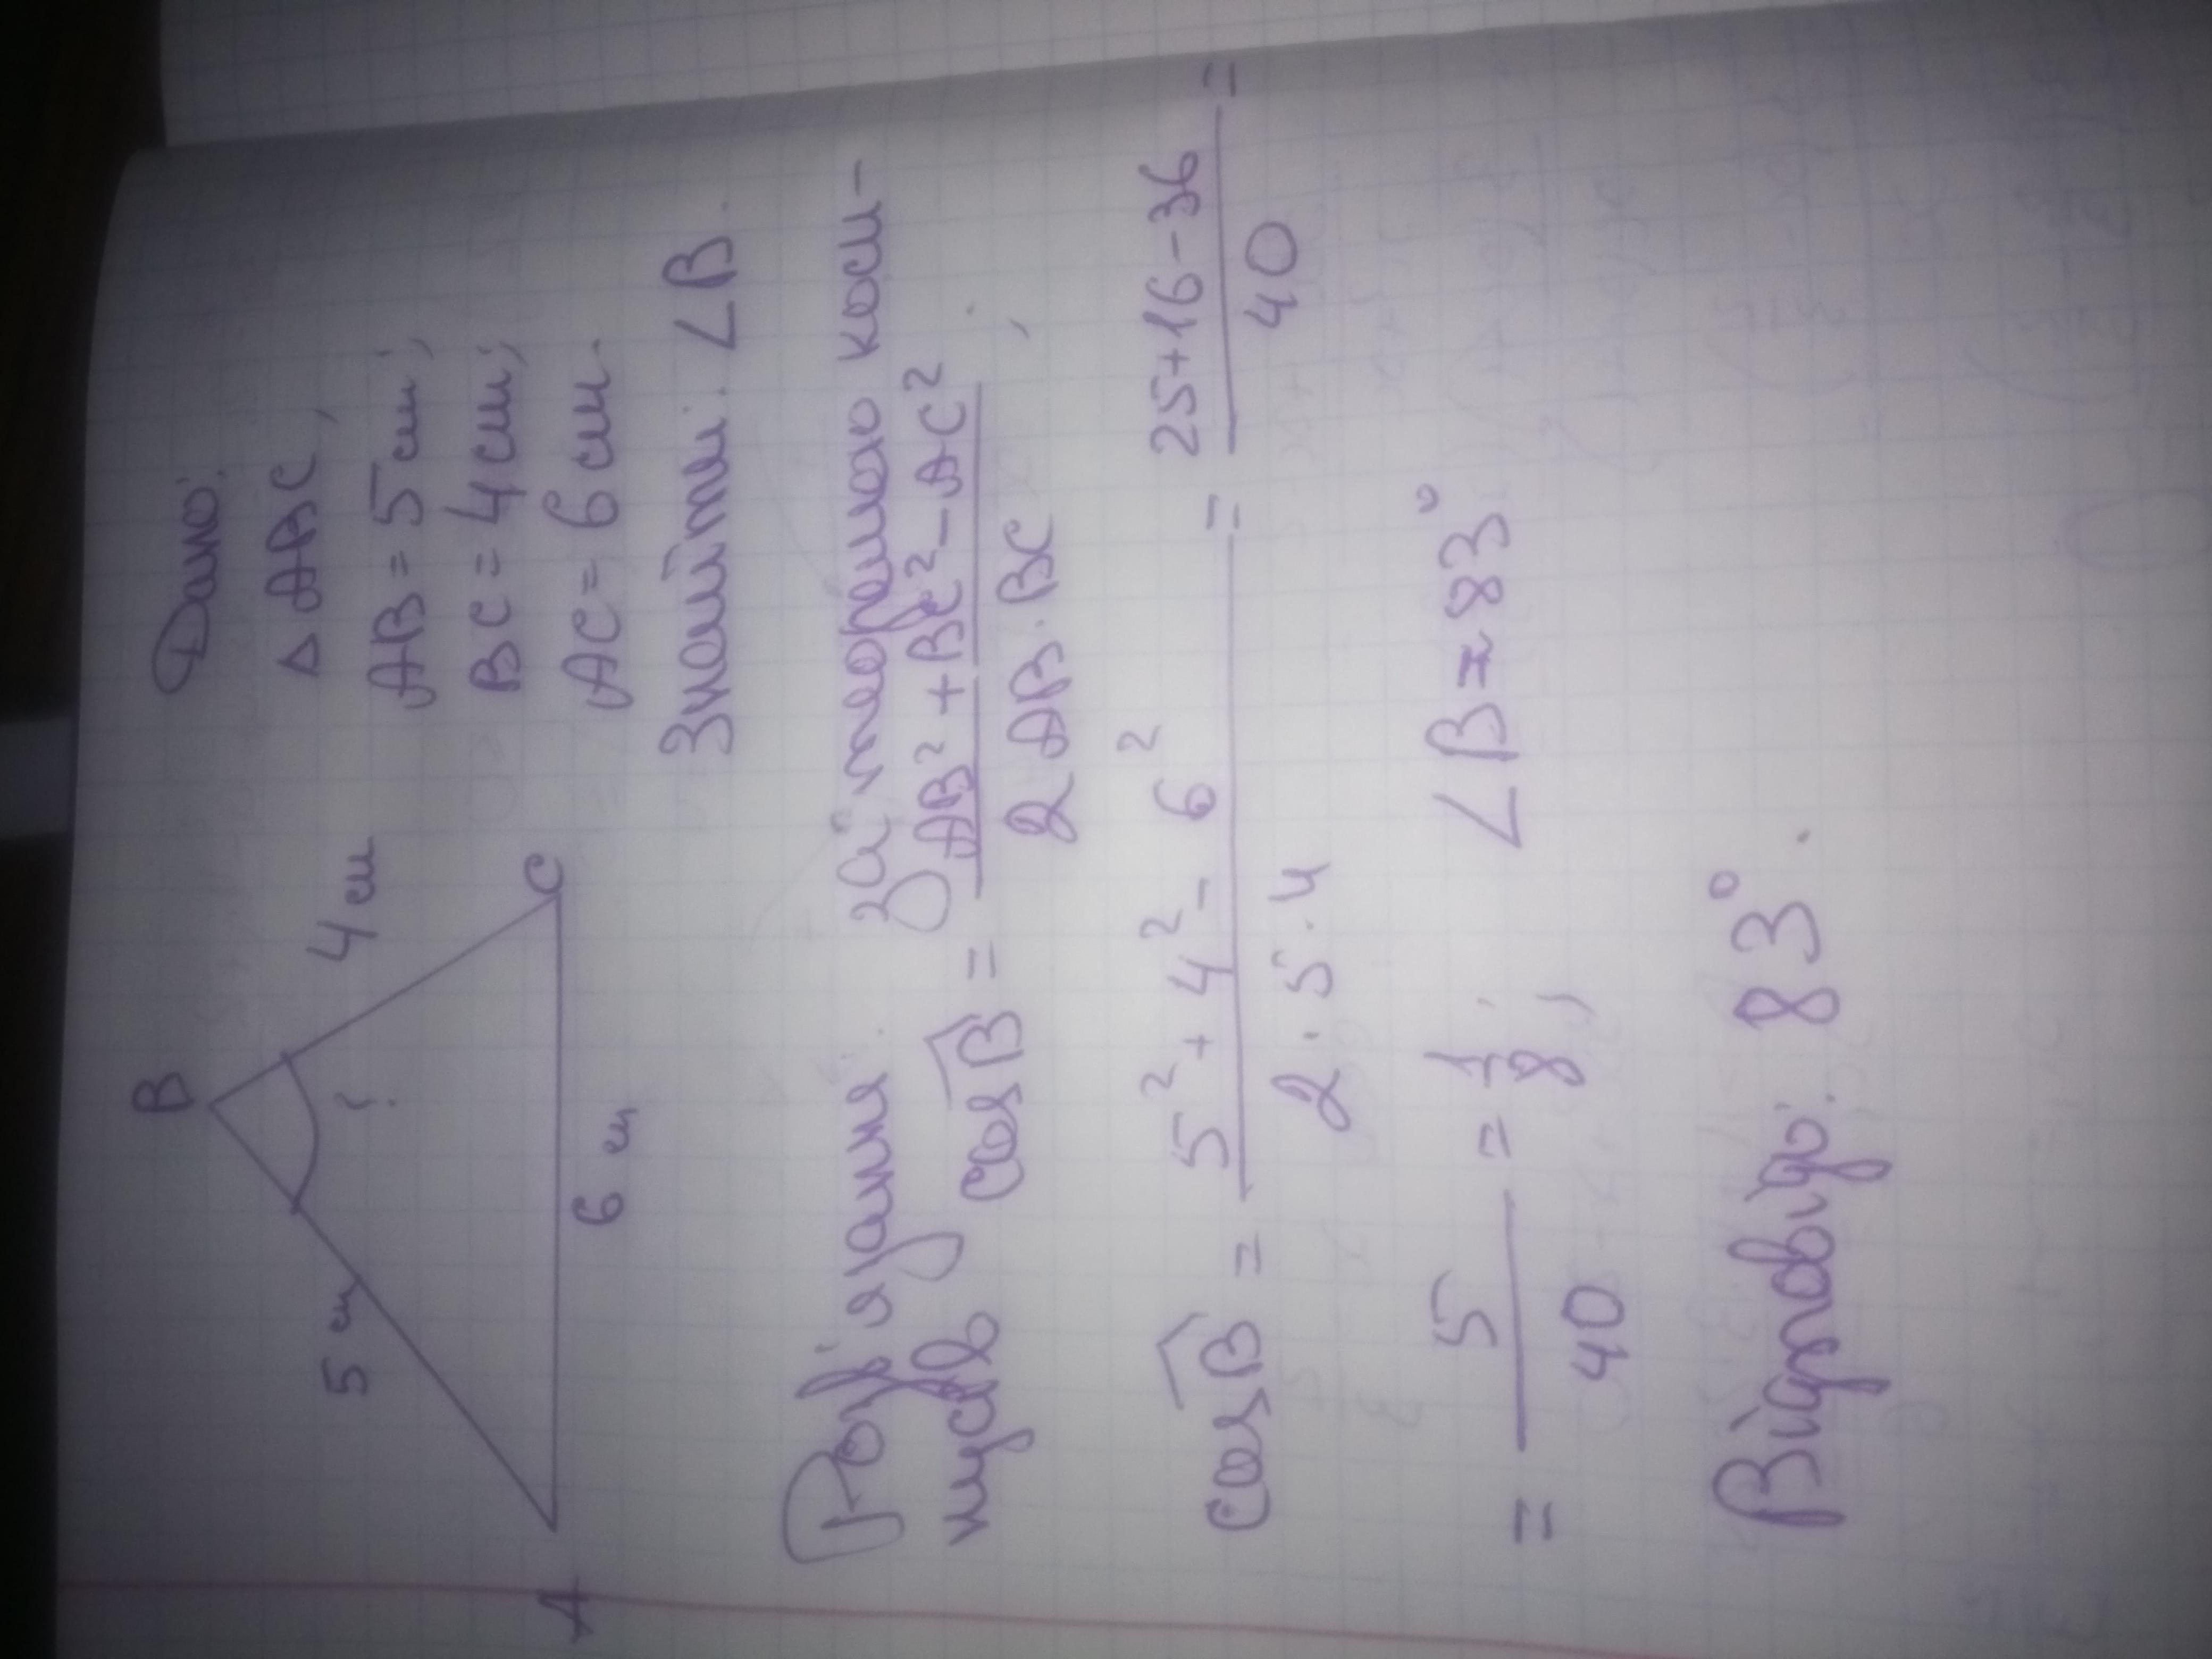 B
5 см
4 см
?
A
6 см
C
Дано:
△ ABC,
AB = 5 см;
BC = 4 см;
AC = 6 см.
Знайти: ∠B.
Розв'язання: За теоремою коси-
нусів cos B̂ = (AB² + BC² - AC²) / (2 AB · BC) ;
cos B̂ = (5² + 4² - 6²) / (2 · 5 · 4) = (25+16-36) / 40 =
= 5/40 = 1/8 ; ∠B ≈ 83°
Відповідь: 83°.